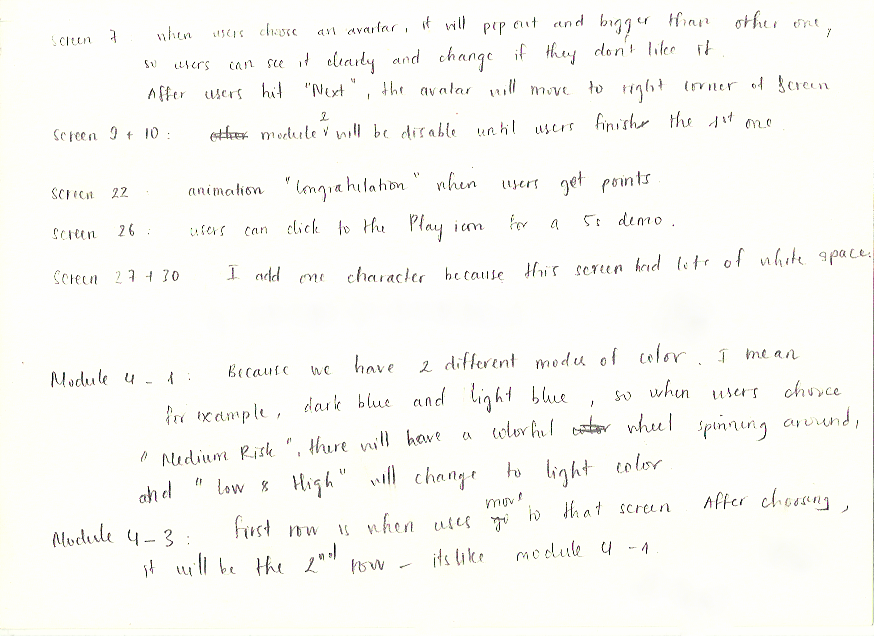 Screen 7 when users choose an avartar, it will pop out and bigger than other one,
so users can see it clearly and change if they don't like it.
After users hit "Next", the avatar will move to right corner of screen
Screen 9 + 10 : other module 2 will be disable until users finishe the 1st one
Screen 22 animation "Congratulation" when users get points
Screen 26 : users can click to the Play icon for a 5s demo.
Screen 27 + 30 I add one character because this screen had lots of white space.
Module 4 - 1 : Because we have 2 different modes of color. I mean
for example, dark blue and light blue, so when users choice
"Medium Risk", there will have a colorful color wheel spinning around,
and "Low & High" will change to light color.
move
Module 4 - 3 : first row is when uses go to that screen After choosing,
it will be the 2nd row - its like module 4 - 1.